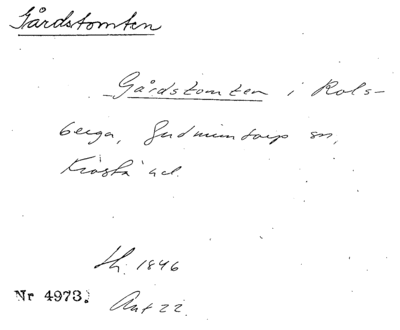 Gårdstomten
Gårdstomten i Rols-
berga, Gudmuntorp sn,
Frosta hd.
th. 1846
Nr 4973. Ant 22